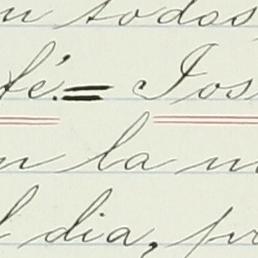 n todas
fé. = Jos
n la m
l dia, pr